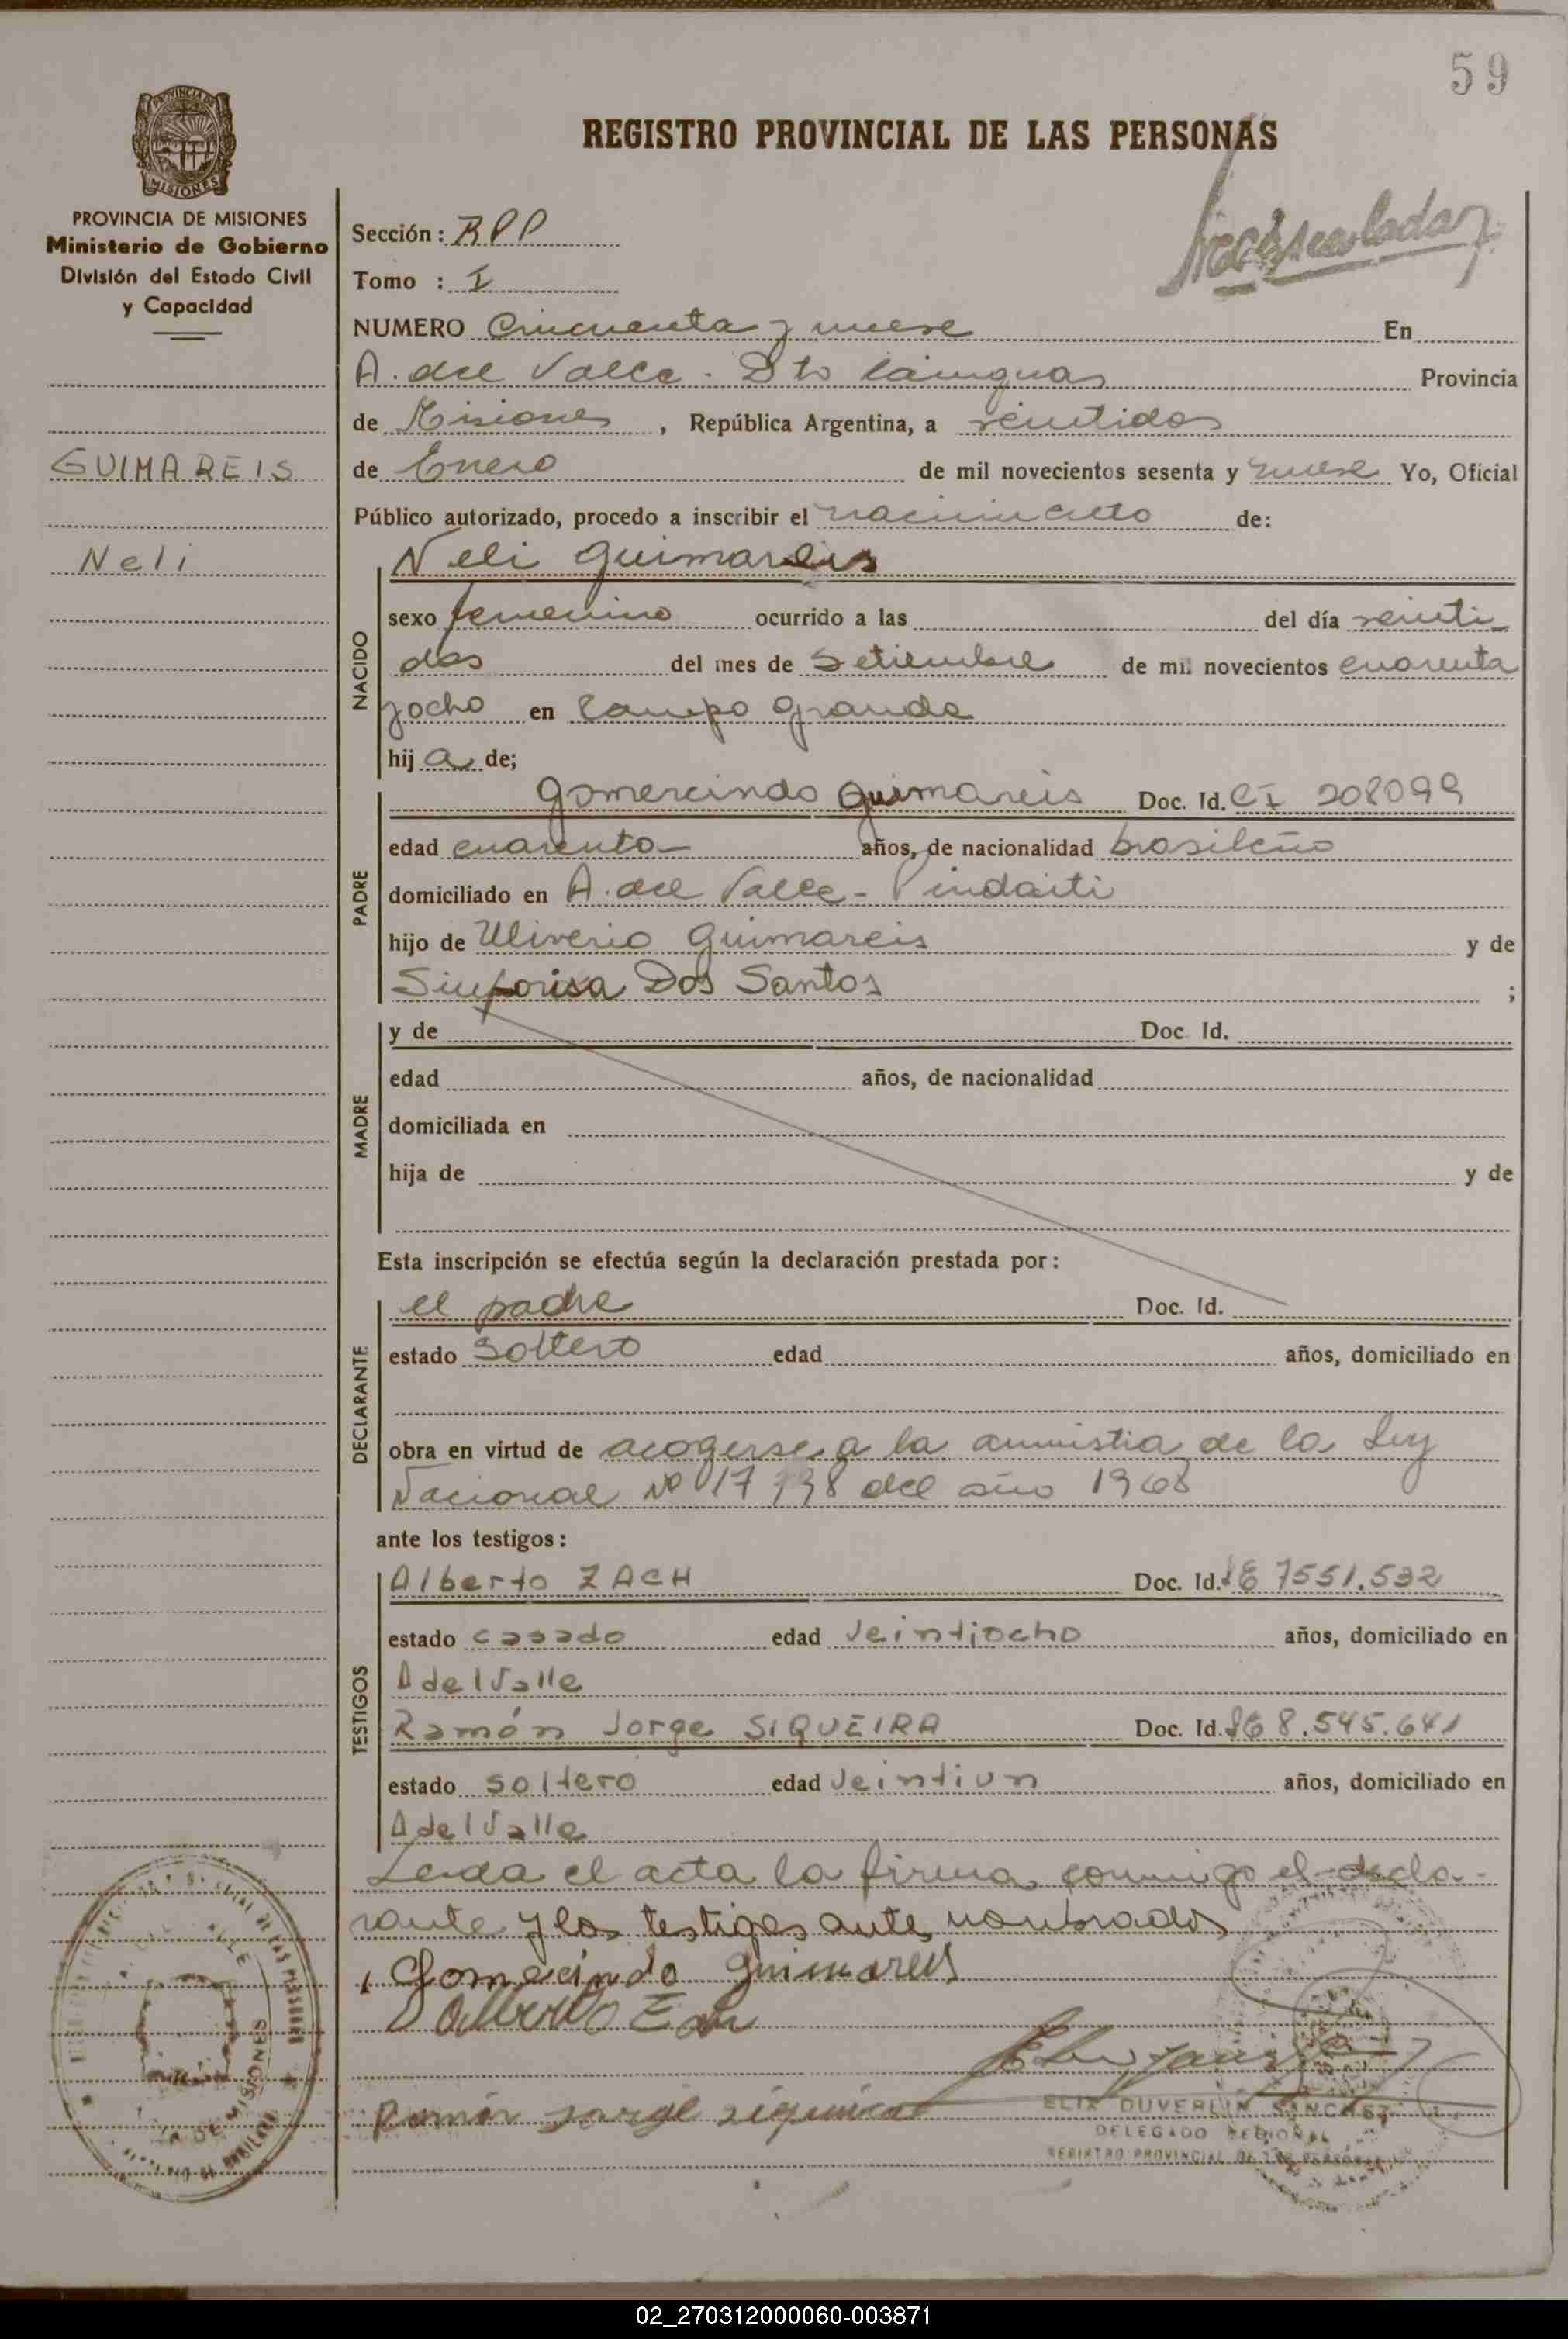 59
REGISTRO PROVINCIAL DE LAS PERSONAS
PROVINCIA DE MISIONES
MISIONES
PROVINCIA DE MISIONES
Ministerio de Gobierno
División del Estado Civil
y Capacidad
GUIMAREIS
Neli
Sección: RPP
Tomo : I
NUMERO Cincuenta y nueve En
A. del Valle - Dto Cainguas Provincia
de Misiones, República Argentina, a veintidos
de Enero de mil novecientos sesenta y nueve Yo, Oficial
Público autorizado, procedo a inscribir el nacimiento de:
NACIDO
Neli Guimareis
sexo femenino ocurrido a las del día veinti
dos del mes de Setiembre de mil novecientos cuarenta
y ocho en Campo Grande
hij a de;
PADRE
Gomercindo Guimareis Doc. Id. CI 208099
edad cuarenta años, de nacionalidad brasileño
domiciliado en A. del Valle - Pindaiti
hijo de Uliverio Guimareis y de
Sinforisa Dos Santos ;
MADRE
y de Doc. Id.
edad años, de nacionalidad
domiciliada en
hija de y de
Esta inscripción se efectúa según la declaración prestada por:
DECLARANTE
el padre Doc. Id.
estado Soltero edad años, domiciliado en
obra en virtud de acogerse a la amnistia de la Ley
Nacional Nº 17 738 del año 1968
ante los testigos:
TESTIGOS
Alberto ZACH Doc. Id. 7551.532
estado casado edad Veintiocho años, domiciliado en
A del Valle
Ramón Jorge SIQUEIRA Doc. Id. 8.545.641
estado soltero edad Veintiun años, domiciliado en
A del Valle
Leida el acta la firma conmigo el decla-
rante y los testigos ante nombrados
Gomecindo Guimareis
Alberto Zach
Ramón Jorge Siqueira
ELIX DUVERLIN SANCHEZ
DELEGADO REGIONAL
REGISTRO PROVINCIAL DE LAS PERSONAS
02_270312000060-003871